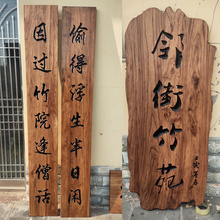 因过竹院逢僧话
偷得浮生半日闲
邻街竹苑